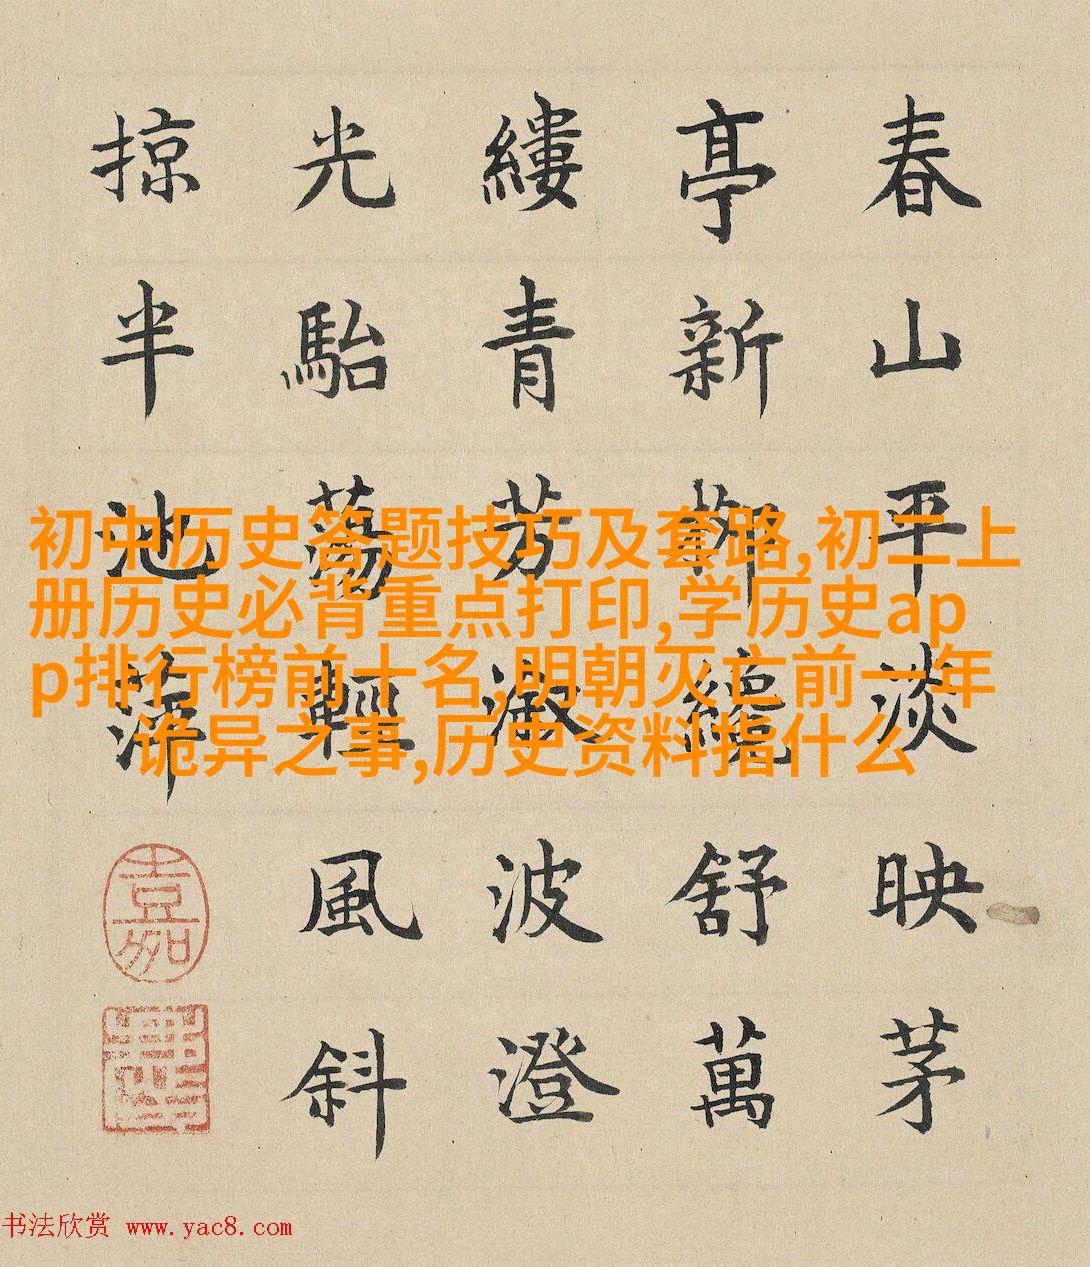 春山平淡映茅
亭新柳纔舒萬
縷青芳漵波澄
光駘蕩輕風斜
掠半池萍
嘉
初中历史答题技巧及套路,初二上
册历史必背重点打印,学历史ap
p排行榜前十名,明朝灭亡前一年
诡异之事,历史资料指什么
书法欣赏 www.yac8.com